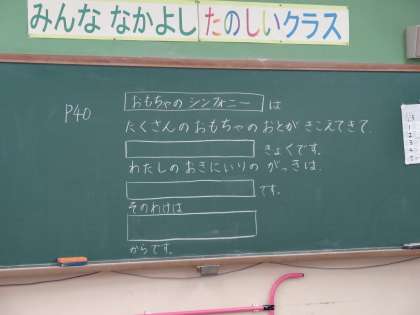 みんな なかよし たのしいクラス
P40
おもちゃの シンフォニー は
たくさんの おもちゃの おとが きこえてきて、
きょくです。
わたしの おきにいりの がっきは、
です。
そのわけは
からです。